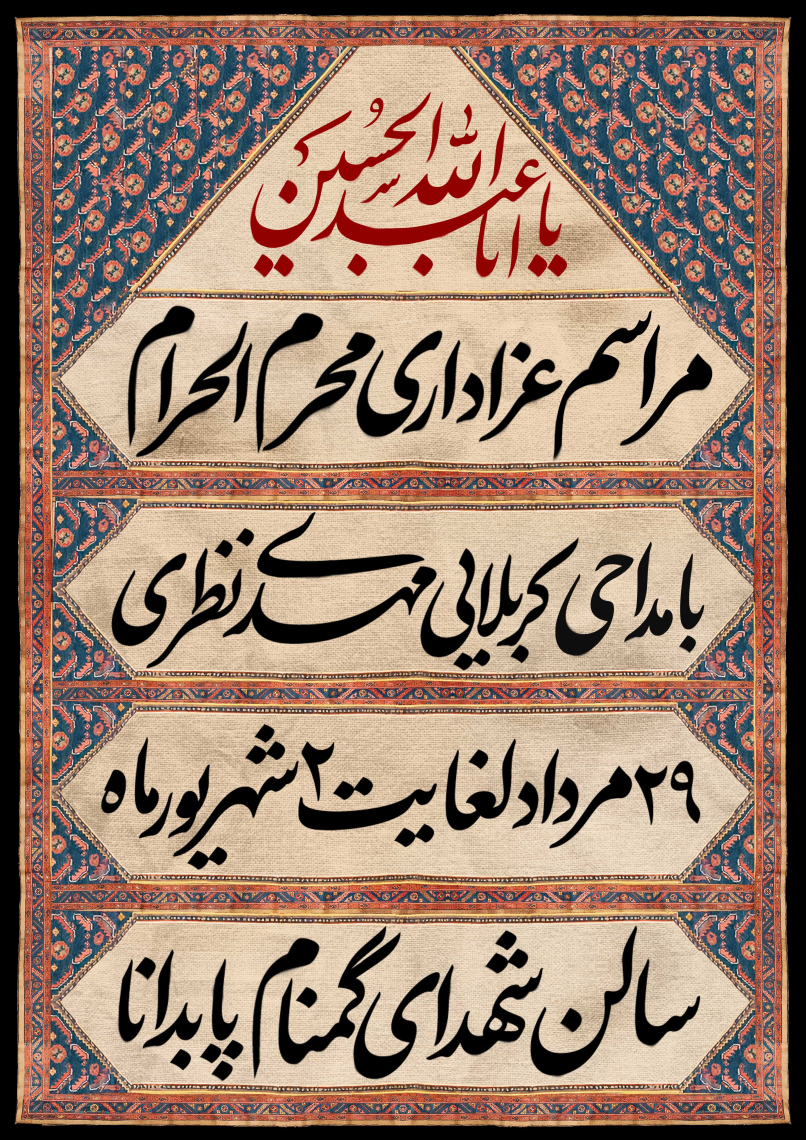 یا اباعبدالله الحسین
مراسم عزاداری محرم الحرام
با مداحی کربلایی مهدی نظری
۲۹ مرداد لغایت ۲ شهریور ماه
سالن شهدای گمنام پابدانا